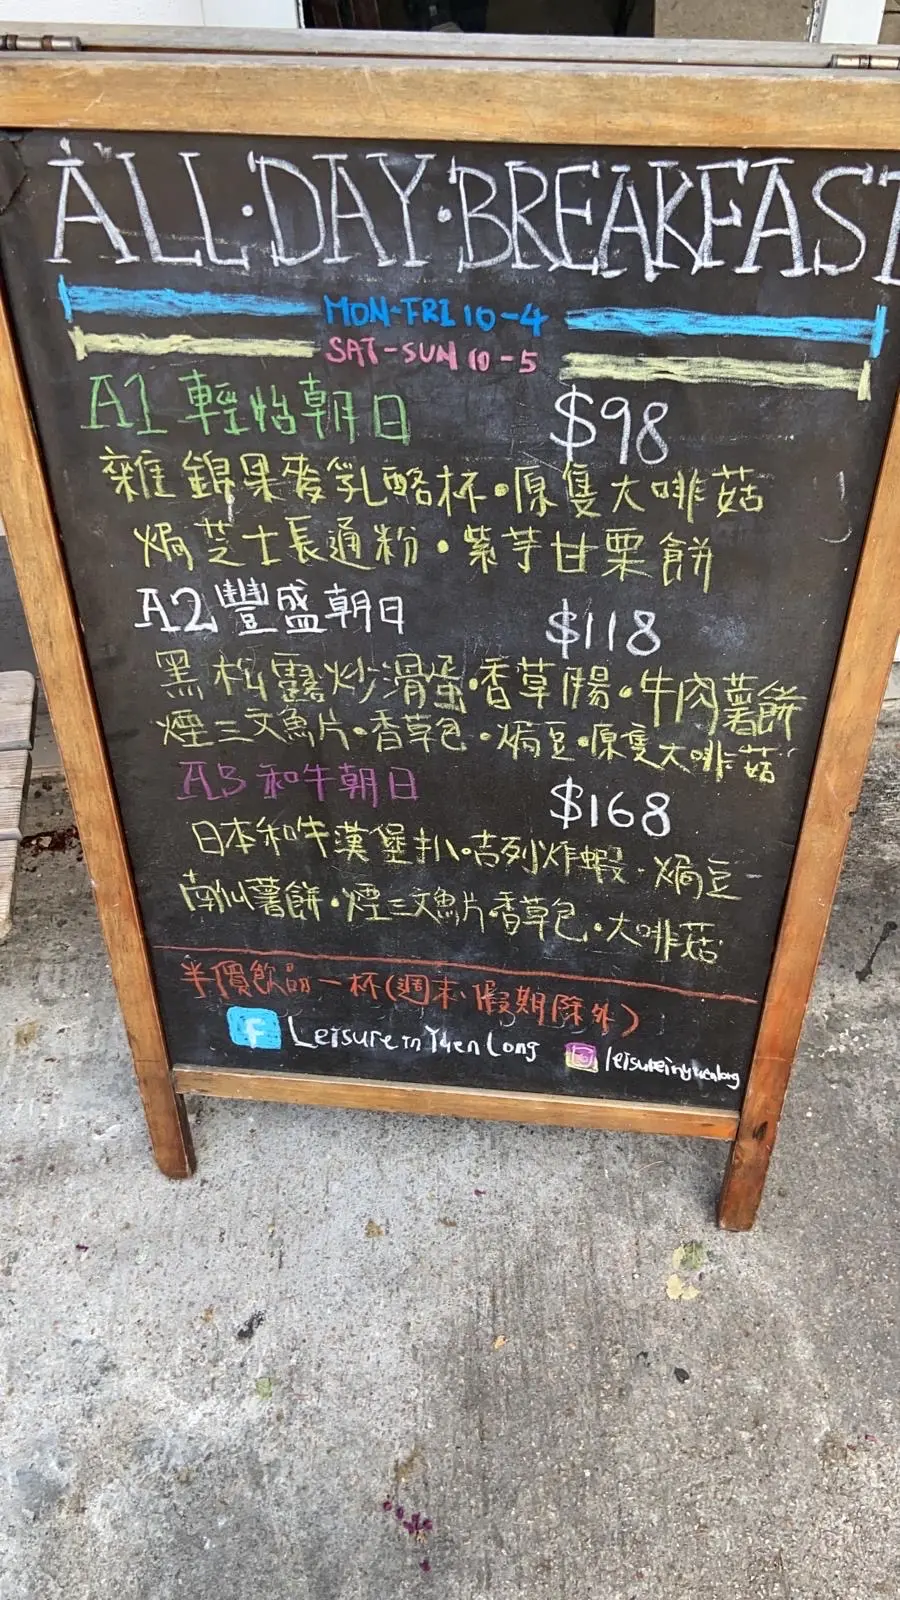 ALL·DAY·BREAKFAST
MON-FRI 10-4
SAT-SUN 10-5
A1 輕怡朝日 $98
雜錦果麥乳酪杯·原隻大啡菇
焗芝士長通粉·紫芋甘栗餅
A2 豐盛朝日 $118
黑松露炒滑蛋·香草腸·牛肉薯餅
煙三文魚片·香草包·焗豆·原隻大啡菇
A3 和牛朝日 $168
日本和牛漢堡扒·吉列炸蝦·焗豆
南仙薯餅·煙三文魚片香草包·大啡菇
半價飲品一杯(週末、假期除外)
f Leisure in Yuen Long
leisureinyuenlong